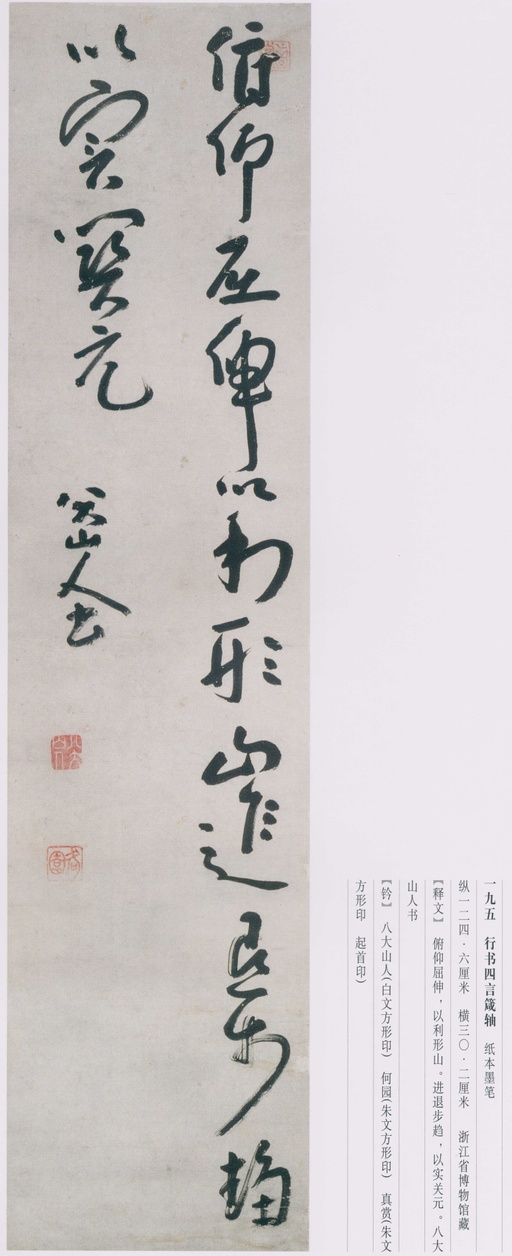 俯仰屈伸以利形山進退步趨
以實關元
八大山人書
一九五　行书四言箴轴　纸本墨笔
纵一二四·六厘米　横三〇·二厘米　浙江省博物馆藏
〖释文〗　俯仰屈伸，以利形山。进退步趋，以实关元。八大
山人书
〖钤〗　八大山人(白文方形印)　何园(朱文方形印)　真赏(朱文
方形印　起首印)